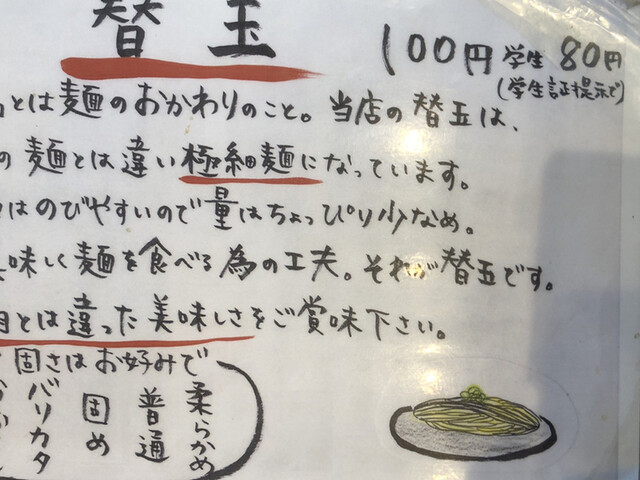 替玉
100円 学生 80円
(学生証提示で)
とは麺のおかわりのこと。当店の替玉は、
の麺とは違い極細麺になっています。
はのびやすいので量はちょっぴり少なめ。
味しく麺を食べる為の工夫。それが替玉です。
とは違った美味しさをご賞味下さい。
固さはお好みで
柔らかめ
普通
固め
バリカタ